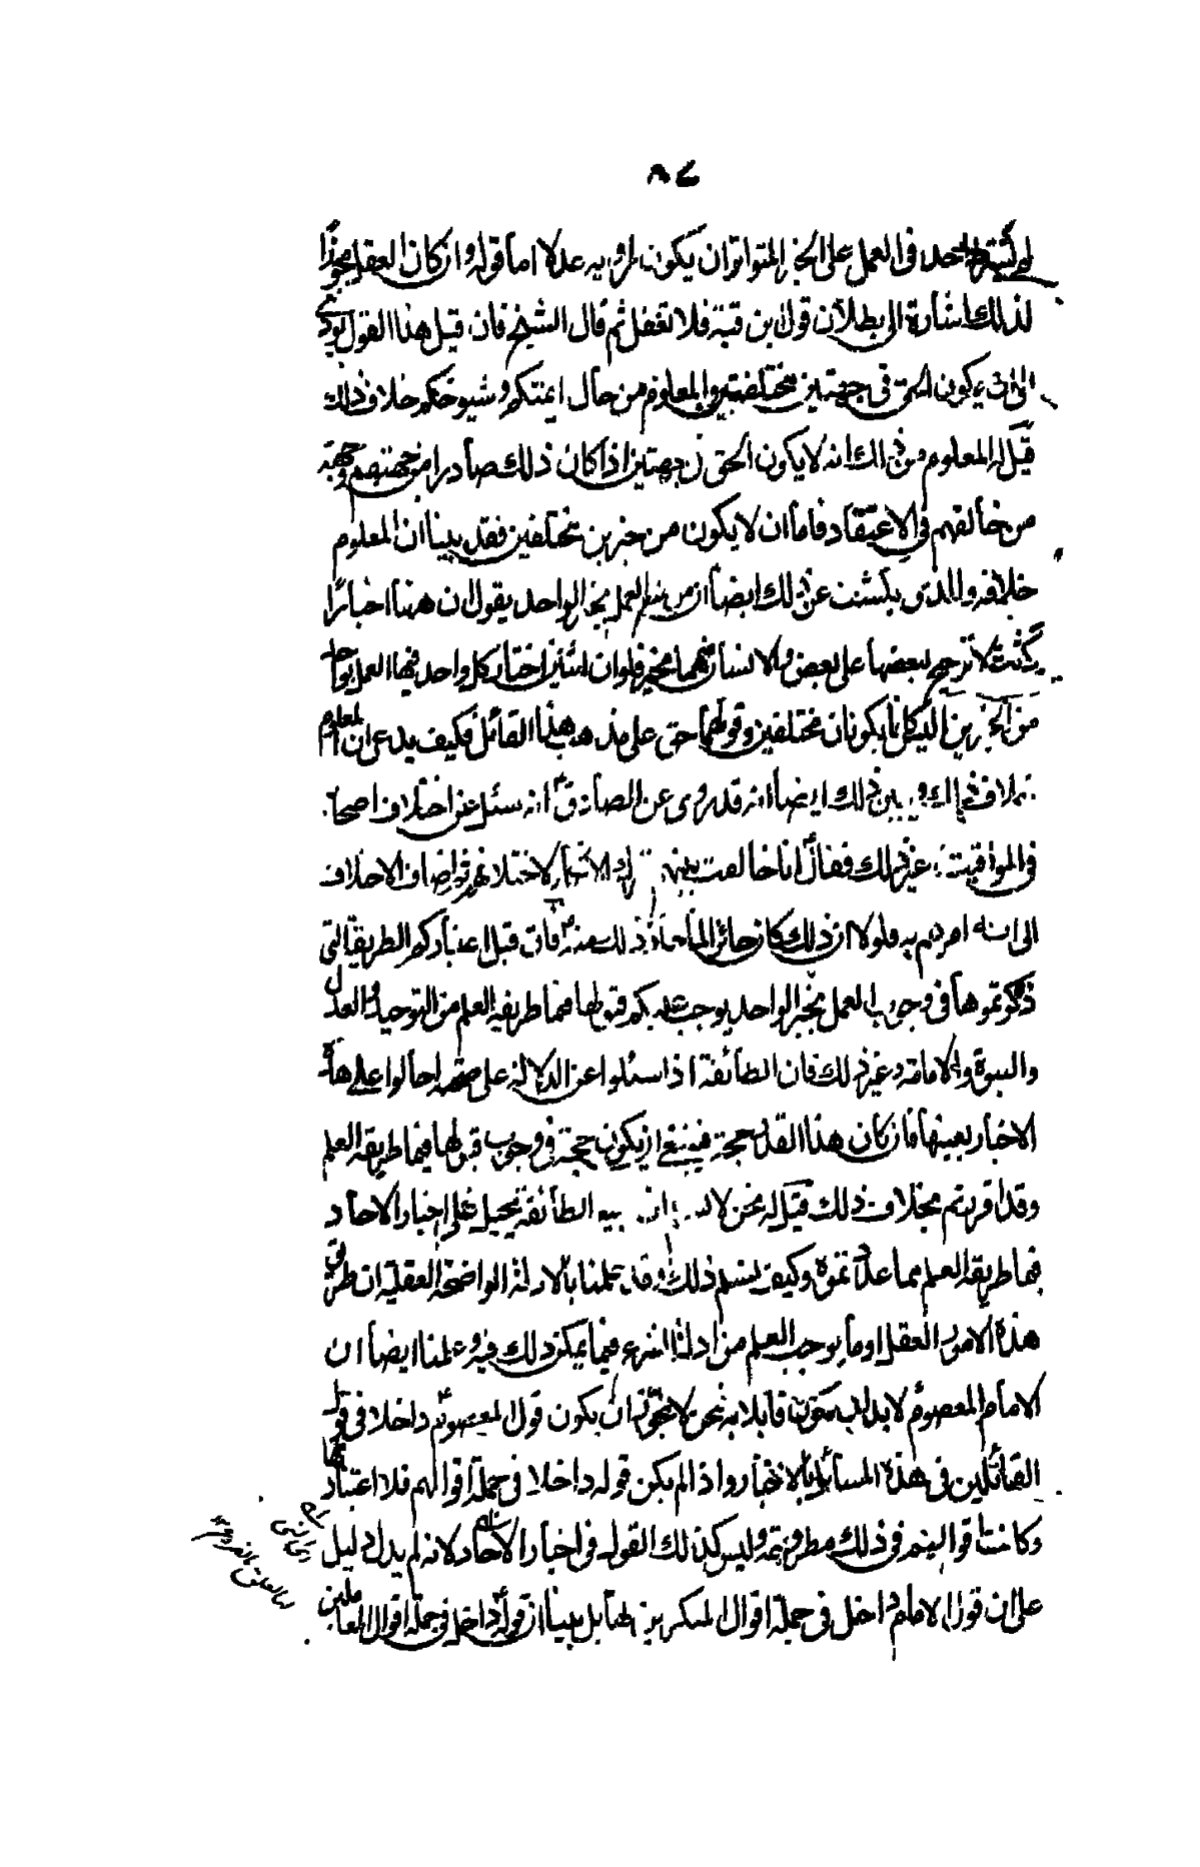 ٨٤
احد في العمل على الخبر المتواتر ان يكون راويه عدلا اما قوله وان كان العقل مجوزا
لذلك اشارة الى بطلان قول ابن قبة فلا تغفل ثم قال الشيخ فان قيل هذا القول يودي
الى ان يكون الحق في جهتين مختلفتين والمعلوم من حال ائمتكم وشيوخكم خلاف ذلك
قيل له المعلوم من ذلك انه لا يكون الحق في جهتين اذا كان ذلك صادرا من جهتهم وجهة
من خالفهم في الاعتقاد فاما ان لا يكون من خبرين مختلفين فقد بينا ان المعلوم
خلافه والذي يكشف عن ذلك ايضا ان من منع العمل بخبر الواحد يقول ان ههنا اخبارا
كثيرة لا ترجيح لبعضها على بعض والانسان فيهما مخير فلو ان اثنين اختار كل واحد فيهما العمل بواحد
من الخبرين اليس كانا يكونان مختلفين وقولهما حق على مذهب هذا القائل فكيف يدعي ان المعلوم
خلاف ذلك ويبين ذلك ايضا انه قد روي عن الصادق ع انه سئل عن اختلاف اصحابه
في المواقيت وغير ذلك فقال انا خالفت بينهم ترك الانكار لاختلافهم ثم اضاف الاختلاف
الى انه امرهم به فلولا ان ذلك كان جائزا لما جاز ذلك منه ع فان قيل اعتباركم الطريقة التي
ذكرتموها في وجوب العمل بخبر الواحد يوجب عليكم قبولها فيما طريقه العلم من التوحيد والعدل
والنبوة والامامة وغير ذلك فان الطائفة اذا سئلوا عن الدلالة على صحتها احالوا على هذه
الاخبار بعينها فان كان هذا القدر حجة فينبغي ان يكون حجة في وجوب قبولها فيما طريقه العلم
وقد اقررتم بخلاف ذلك قيل له نحن لا الطائفة تحيل على اخبار الاحاد
فيما طريقه العلم مما عددتموه وكيف نسلم ذلك وقد علمنا بالادلة الواضحة العقلية ان طريق
هذه الامور العقل او ما يوجب العلم من ادلة الشرع فيما يمكن ذلك فيه وعلمنا ايضا ان
الامام المعصوم لا بد ان يكون قائلا به فنحن لا نجوز ان يكون قول المعصوم ع داخلا في قول
القائلين في هذه المسائل بالاخبار واذا لم يكن قوله داخلا في جملة اقوالهم فلا اعتبار بها
وكانت اقوالهم في ذلك مطروحة وليس كذلك القول في اخبار الاحاد لانه لم يدل دليل
على ان قول الامام داخل في جملة اقوال المنكرين لها بل بينا ان قوله ع داخل في جملة اقوال العاملين